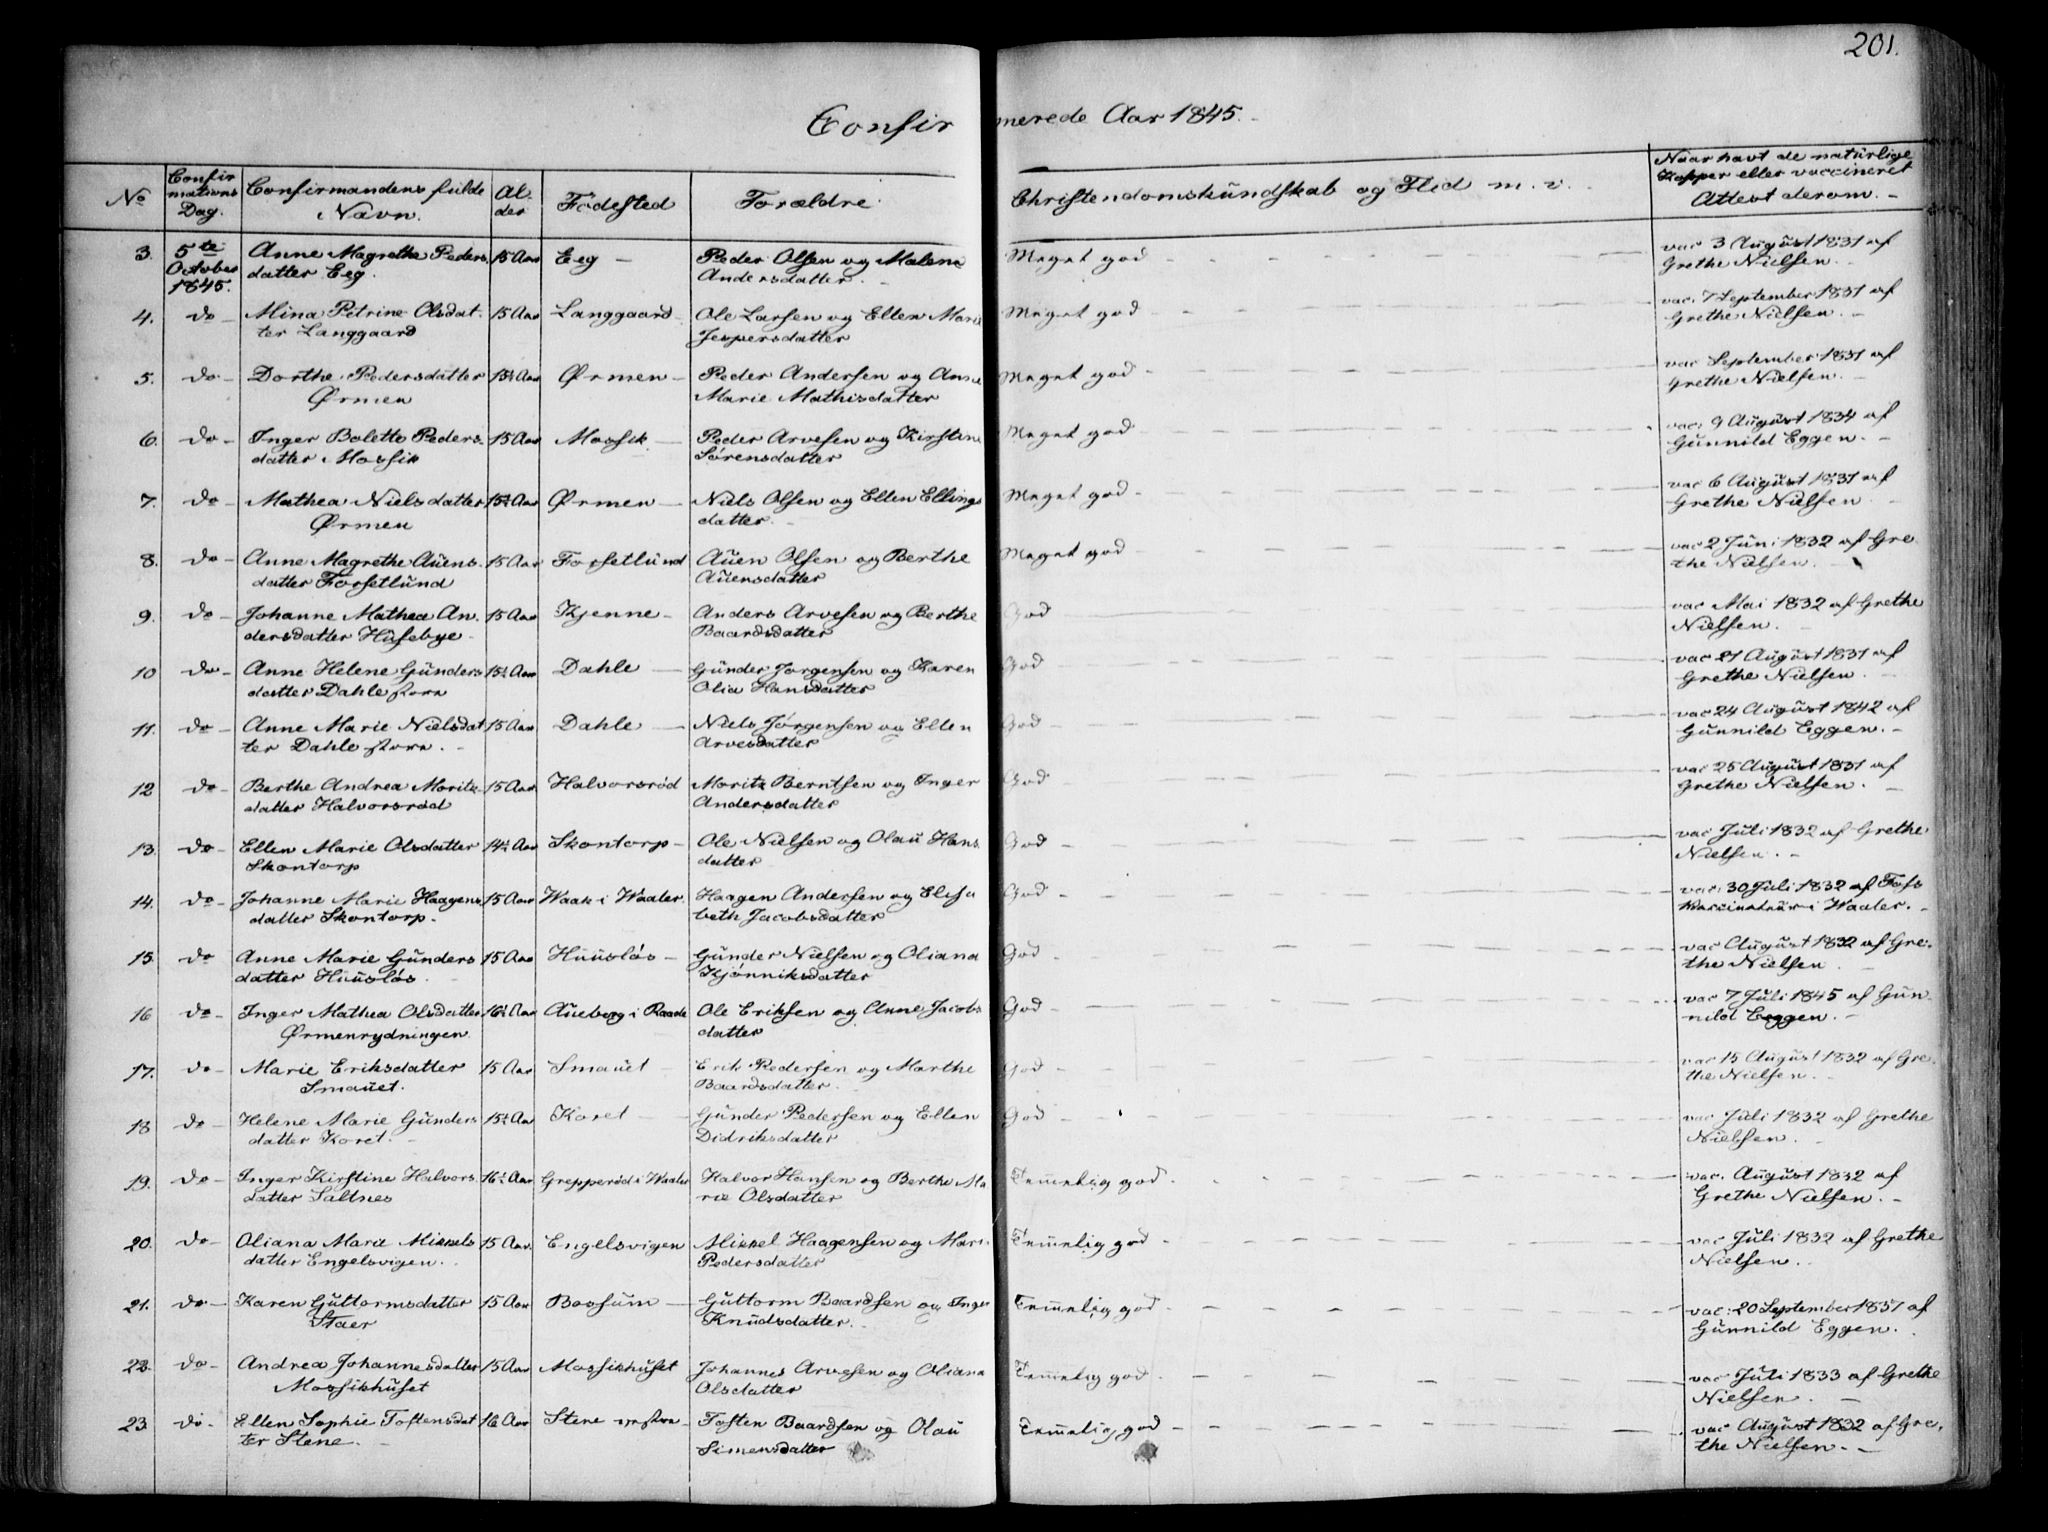 201.
Confirmerede Aar 1845.
No
Confirmations Dag.
Confirmandens fulde Navn.
Alder
Födested
Forældre
Christendomskundskab og Flid m. v.
Naar havt de natürlige Kopper eller vaccineret Attest derom.
3. 5te October 1845. Anne Magrethe Pedersdatter Eeg. 15 Aar Eeg Peder Olsen og Malene Andersdatter. Meget god vac 3 August 1831 af Grethe Nielsen.
4. do Mina Petrine Olsdatter Langgaard 15 Aar Langgaard Ole Larsen og Ellen Marie Jespersdatter Meget god vac. 7 September 1831 af Grethe Nielsen.
5. do Dorthe Pedersdatter Ørmen 15½ Aar Ørmen Peder Andersen og Anne Marie Mathisdatter Meget god vac September 1831 af Grethe Nielsen.
6. do Inger Bolette Pedersdatter Mossik 15 Aar Mossik Peder Arvesen og Kirstine Sörensdatter Meget god vac: 9 August 1834 af Gunnild Eggen.
7. do Mathea Nielsdatter Ørmen 15½ Aar Ørmen Niels Olsen og Ellen Ellingsdatter. Meget god vac 6 August 1831 af Grethe Nielsen
8. do Anne Magrethe Auensdatter Forsetlund 15 Aar Forsetlund Auen Olsen og Berthe Auensdatter Meget god vac 2 Juni 1832 af Grethe Nielsen.
9. do Johanne Mathea Andersdatter Husebye 15 Aar Kjenne Anders Arvesen og Berthe Baardsdatter God vac Mai 1832 af Grethe Nielsen.
10 do Anne Helene Gundersdatter Dahle store 15½ Aar Dahle Gunder Jorgensen og Karen Olia Hansdatter God vac 21 August 1831 af Grethe Nielsen.
11. do Anne Marie Nielsdatter Dahle store. 15 Aar Dahle Niels Jörgensen og Ellen Arvesdatter God vac 24 August 1842 af Gunnild Eggen.
12 do Berthe Andrea Moritzdatter Halvorsröd 15 Aar Halvorsröd Moritz Berntsen og Inger Andersdatter God vac 25 August 1831 af Grethe Nielsen.
13. do Ellen Marie Olsdatter Skontorp 14½ Aar Skontorp Ole Nielsen og Olau Hansdatter God vac Juli 1832 af Grethe Nielsen.
14. do Johanne Marie Haagensdatter Skontorp. 15 Aar Waak i Waaler. Haagen Andersen og Elisabeth Jacobsdatter God vac: 30 Juli 1832 af Foss Vaccinateur i Waaler.
15. do Anne Marie Gundersdatter Huuslös. 15 Aar Huuslös Gunder Nielsen og Oliana Kjönniksdatter God vac August 1832 af Grethe Nielsen.
16 do Inger Mathea Olsdatter Ørmenrydningen 16½ Aar Aueberg i Raade Ole Eriksen og Anne Jacobsdatter God vac 7 Juli 1845 af Gunnild Eggen.
17. do Marie Eriksdatter Smauet. 15 Aar Smauet Erik Pedersen og Marthe Baardsdatter. God vac 15 August 1832 af Grethe Nielsen.
18 do Helene Marie Gundersdatter Koret. 15½ Aar Koret Gunder Pedersen og Ellen Didriksdatter God vac Juli 1832 af Grethe Nielsen.
19. do Inger Kirstine Halvorsdatter Saltnes 16½ Aar Grepperöd i Waaler Halvor Hansen og Berthe Marie Olsdatter Temmelig god vac. August 1832 af Grethe Nielsen.
20. do Oliana Marie Mikkelsdatter Engelsvigen. 15 Aar. Engelsvigen Mikkel Haagensen og Mari Pedersdatter Temmelig god vac Juli 1832 af Grethe Nielsen.
21. do Karen Guttormsdatter Staer 15 Aar Bossum Guttorm Baardsen og Inger Knudsdatter. Temmelig god vac: 20 September 1831 af Gunnild Eggen.
22. do Andrea Johannesdatter Mossikhuset 15 Aar Mossikhuset Johannes Arvesen og Oliana Olsdatter Temmelig god vac Juli 1833 af Grethe Nielsen.
23. do Ellen Sophie Tostensdatter Stene. 16 Aar Stene Tosten Baardsen og Olau Simensdatter Temmelig god vac August 1832 af Grethe Nielsen.